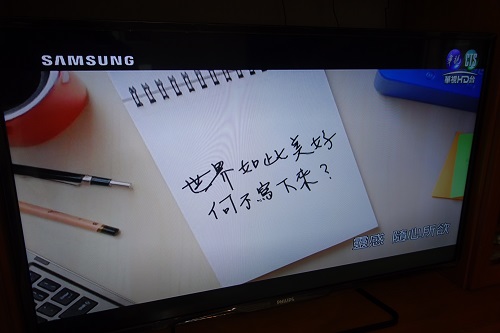 SAMSUNG
CTS
華視HD台
世界如此美好
何不寫下來?
隨心所欲
PHILIPS